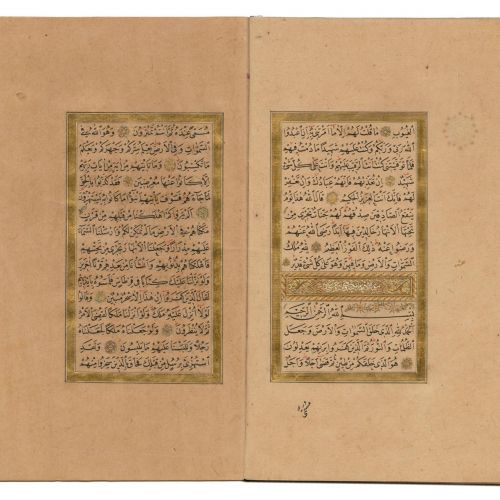 الغيوب ما قلت لهم إلا ما أمرتني به أن اعبدوا
الله ربي وربكم وكنت عليهم شهيدا ما دمت فيهم
فلما توفيتني كنت أنت الرقيب عليهم وأنت على كل شيء
شهيد إن تعذبهم فإنهم عبادك وإن تغفر
لهم فإنك أنت العزيز الحكيم قال الله هذا يوم
ينفع الصادقين صدقهم لهم جنات تجري من
تحتها الأنهار خالدين فيها أبدا رضي الله عنهم
ورضوا عنه ذلك الفوز العظيم لله ملك
السموات والأرض وما فيهن وهو على كل شيء قدير
بسم الله الرحمن الرحيم
الحمد لله الذي خلق السموات والأرض وجعل
الظلمات والنور ثم الذين كفروا بربهم يعدلون
هو الذي خلقكم من طين ثم قضى أجلا وأجل
مسمى عنده ثم أنتم تمترون وهو الله في
السموات وفي الأرض يعلم سركم وجهركم ويعلم
ما تكسبون وما تأتيهم من آية من آيات ربهم
إلا كانوا عنها معرضين فقد كذبوا بالحق
لما جاءهم فسوف يأتيهم أنباء ما كانوا به يستهزؤن
ألم يروا كم أهلكنا من قبلهم من قرن
مكناهم في الأرض ما لم نمكن لكم وأرسلنا السماء
عليهم مدرارا وجعلنا الأنهار تجري من تحتهم
فأهلكناهم بذنوبهم وأنشأنا من بعدهم قرنا آخرين
ولو نزلنا عليك كتابا في قرطاس فلمسوه بأيديهم
لقال الذين كفروا إن هذا إلا سحر مبين وقالوا
لولا أنزل عليه ملك ولو أنزلنا ملكا لقضي الأمر
ثم لا ينظرون ولو جعلناه ملكا لجعلناه
رجلا وللبسنا عليهم ما يلبسون ولقد
استهزئ برسل من قبلك فحاق بالذين سخروا منهم